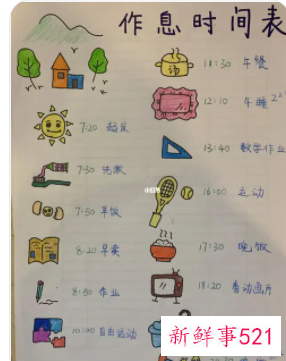 作息时间表
7:20 起床
7:30 洗漱
7:50 早饭
8:20 早读
8:30 作业
10:00 自由运动
汤
11:30 午餐
12:10 午睡
13:40 数学作业
16:00 运动
17:30 晚饭
18:20 看动画片
小红书
新鲜事521